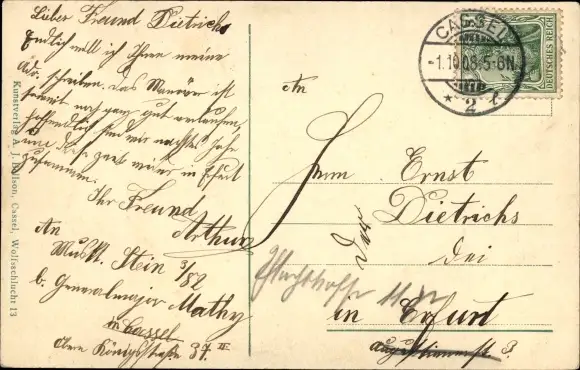 Lieber Freund Dietrichs
Endlich will ich Ihnen meine
Adr. schreiben, das Manöver ist
soweit noch ganz gut verlaufen,
hoffentlich sind wir nächstes Jahr
um diese Zeit wieder in Erfurt
zusammen.
Ihr Freund
Arthur
An
Musk. Stein 3/82
b. Generalmajor Mathy
in Cassel
Obere Königsstraße 37 III
Kunstverlag A. J. Cassel, Wolfsschlucht 13
CASSEL
-1.10.08.5-6N.
* 2 t
DEUTSCHES REICH
An
Herrn Ernst
Dietrichs
bei
in Erfurt
Augustinerstr 3.